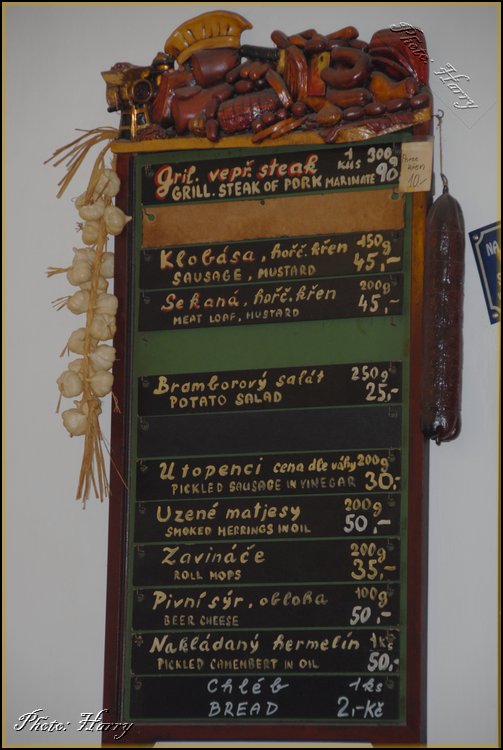 Photo: Harry
Gril. vepř. steak 1 kus 300g
GRILL. STEAK OF PORK MARINATE 90
Porce
křen
10.-
Klobása, hořč. křen 150g
SAUSAGE, MUSTARD 45,-
Sekaná, hořč. křen 200g
MEAT LOAF, MUSTARD 45,-
NA
Bramborový salát 250g
POTATO SALAD 25,-
Utopenci cena dle váhy 200g
PICKLED SAUSAGE IN VINEGAR 30,-
Uzené matjesy 200g
SMOKED HERRINGS IN OIL 50,-
Zavináče 200g
ROLL MOPS 35,-
Pivní sýr, obloha 100g
BEER CHEESE 50,-
Nakládaný hermelín 1ks
PICKLED CAMEMBERT IN OIL 50,-
Chléb 1ks
BREAD 2,-Kč
Photo: Harry